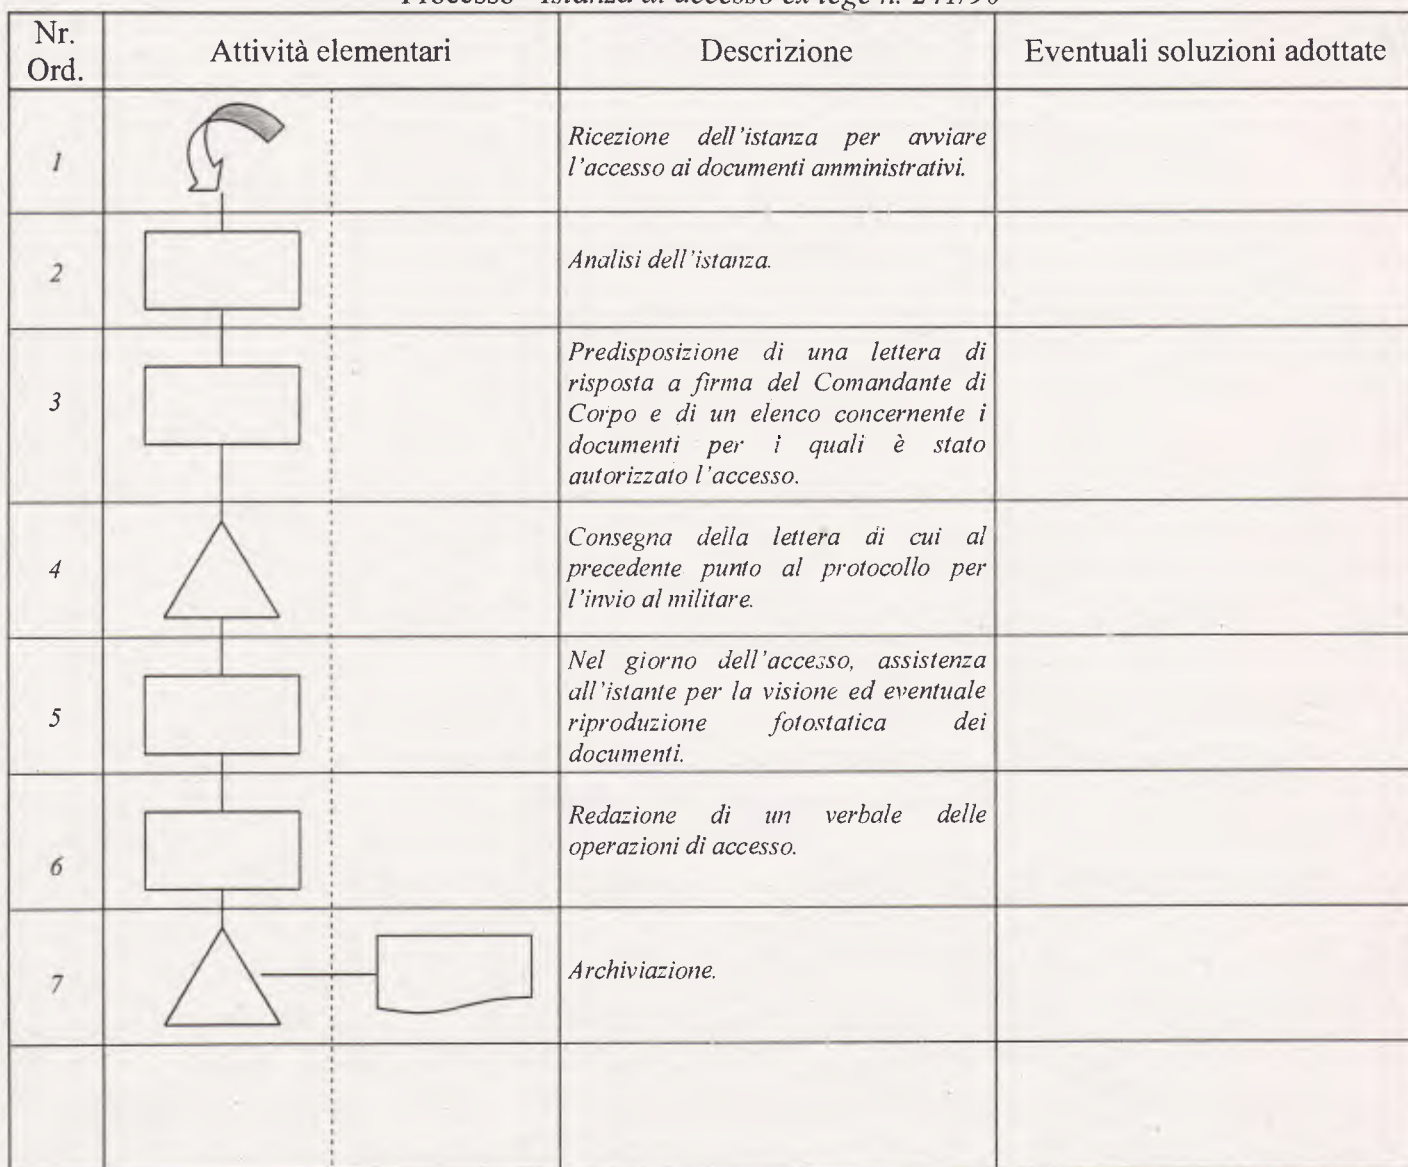 Processo "Istanza di accesso ex lege n. 241/90"
Nr.
Ord.
Attività elementari
Descrizione
Eventuali soluzioni adottate
1
Ricezione dell'istanza per avviare
l'accesso ai documenti amministrativi.
2
Analisi dell'istanza.
3
Predisposizione di una lettera di
risposta a firma del Comandante di
Corpo e di un elenco concernente i
documenti per i quali è stato
autorizzato l'accesso.
4
Consegna della lettera di cui al
precedente punto al protocollo per
l'invio al militare.
5
Nel giorno dell'accesso, assistenza
all'istante per la visione ed eventuale
riproduzione fotostatica dei
documenti.
6
Redazione di un verbale delle
operazioni di accesso.
7
Archiviazione.